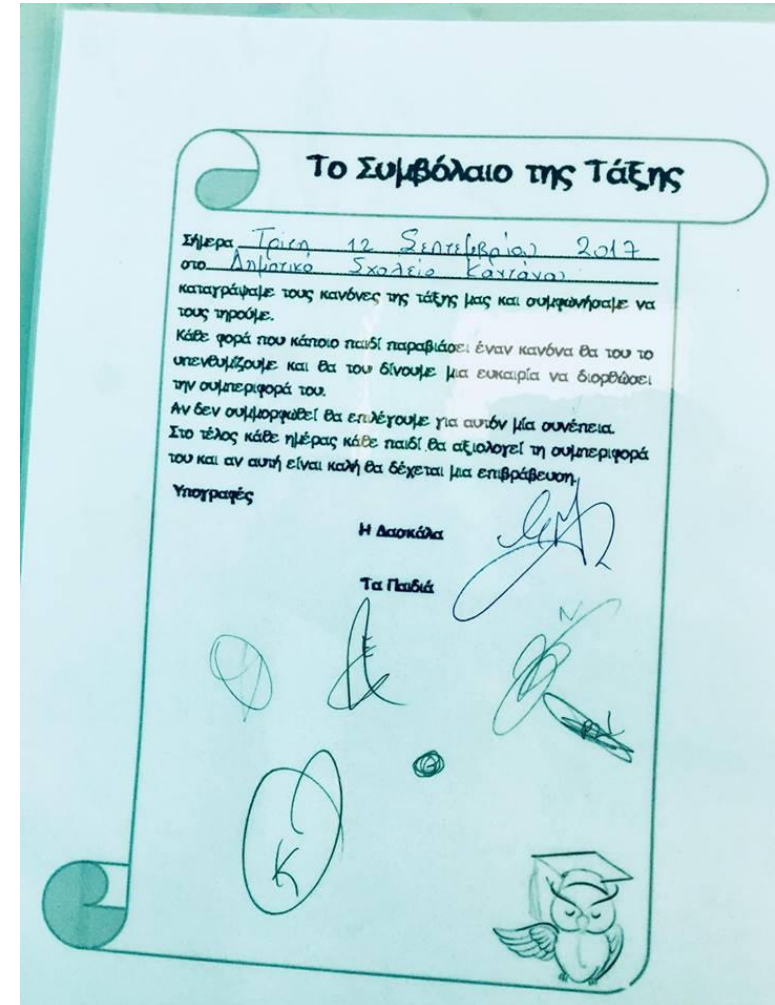 Το Συμβόλαιο της Τάξης
Σήμερα Τρίτη 12 Σεπτεμβρίου 2017
στο Δημοτικό Σχολείο Καντάνου
καταγράψαμε τους κανόνες της τάξης μας και συμφωνήσαμε να
τους τηρούμε.
Κάθε φορά που κάποιο παιδί παραβιάσει έναν κανόνα θα του το
υπενθυμίζουμε και θα του δίνουμε μια ευκαιρία να διορθώσει
την συμπεριφορά του.
Αν δεν συμμορφωθεί θα επιλέγουμε για αυτόν μία συνέπεια.
Στο τέλος κάθε ημέρας κάθε παιδί θα αξιολογεί τη συμπεριφορά
του και αν αυτή είναι καλή θα δέχεται μια επιβράβευση.
Υπογραφές
Η Δασκάλα
Τα Παιδιά
Κ